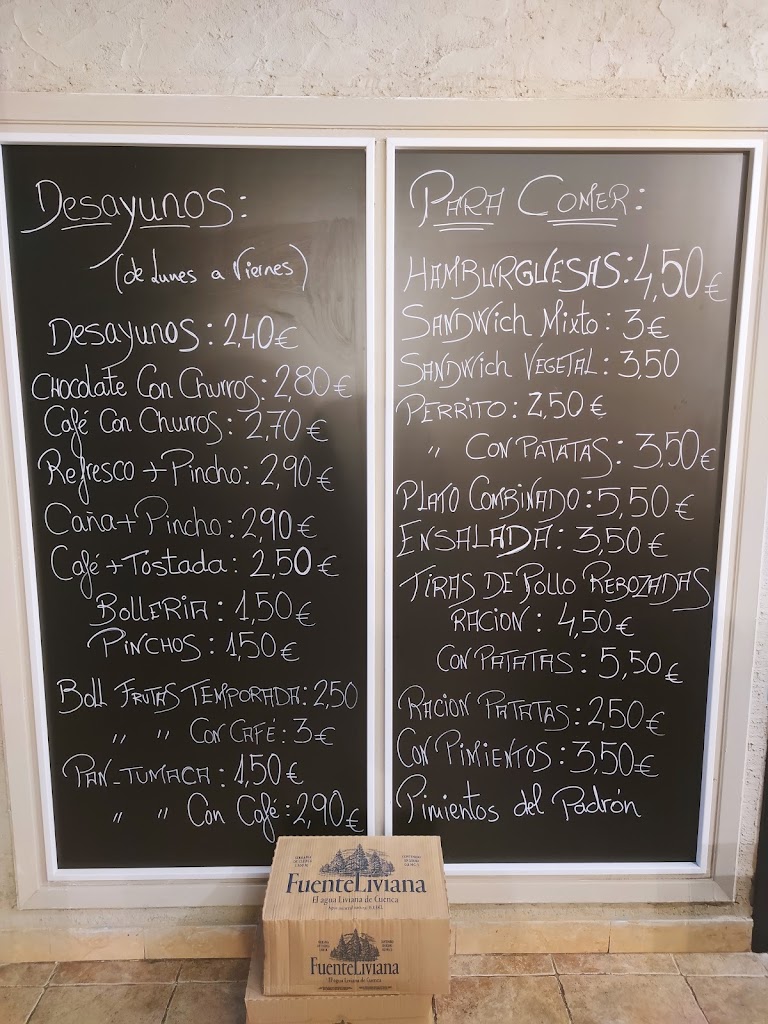 Desayunos:
(de Lunes a Viernes)
Desayunos: 2,40€
Chocolate Con Churros: 2,80€
Café Con Churros: 2,70€
Refresco + Pincho: 2,90€
Caña + Pincho: 2,90€
Café + Tostada: 2,50€
BOLLERIA: 1,50€
PINCHOS: 1,50€
BOLL FRUTAS TEMPORADA: 2,50
" " CON CAFÉ: 3€
PAN-TUMACA: 1,50€
" " Con Café: 2,90€
PARA COMER:
HAMBURGUESAS: 4,50€
SANDWich Mixto: 3€
SANDWich VEGETAL: 3,50
PERRITO: 2,50€
" CON PATATAS: 3,50€
PLATO COMBINADO: 5,50€
ENSALADA: 3,50€
TIRAS DE Pollo REBOZADAS
RACIÓN: 4,50€
CON PATATAS: 5,50€
RACION PATATAS: 2,50€
CON PIMIENTOS: 3,50€
Pimientos del Padrón
FUENTELIVIANA
El agua Liviana de Cuenca
FUENTELIVIANA
El agua Liviana de Cuenca